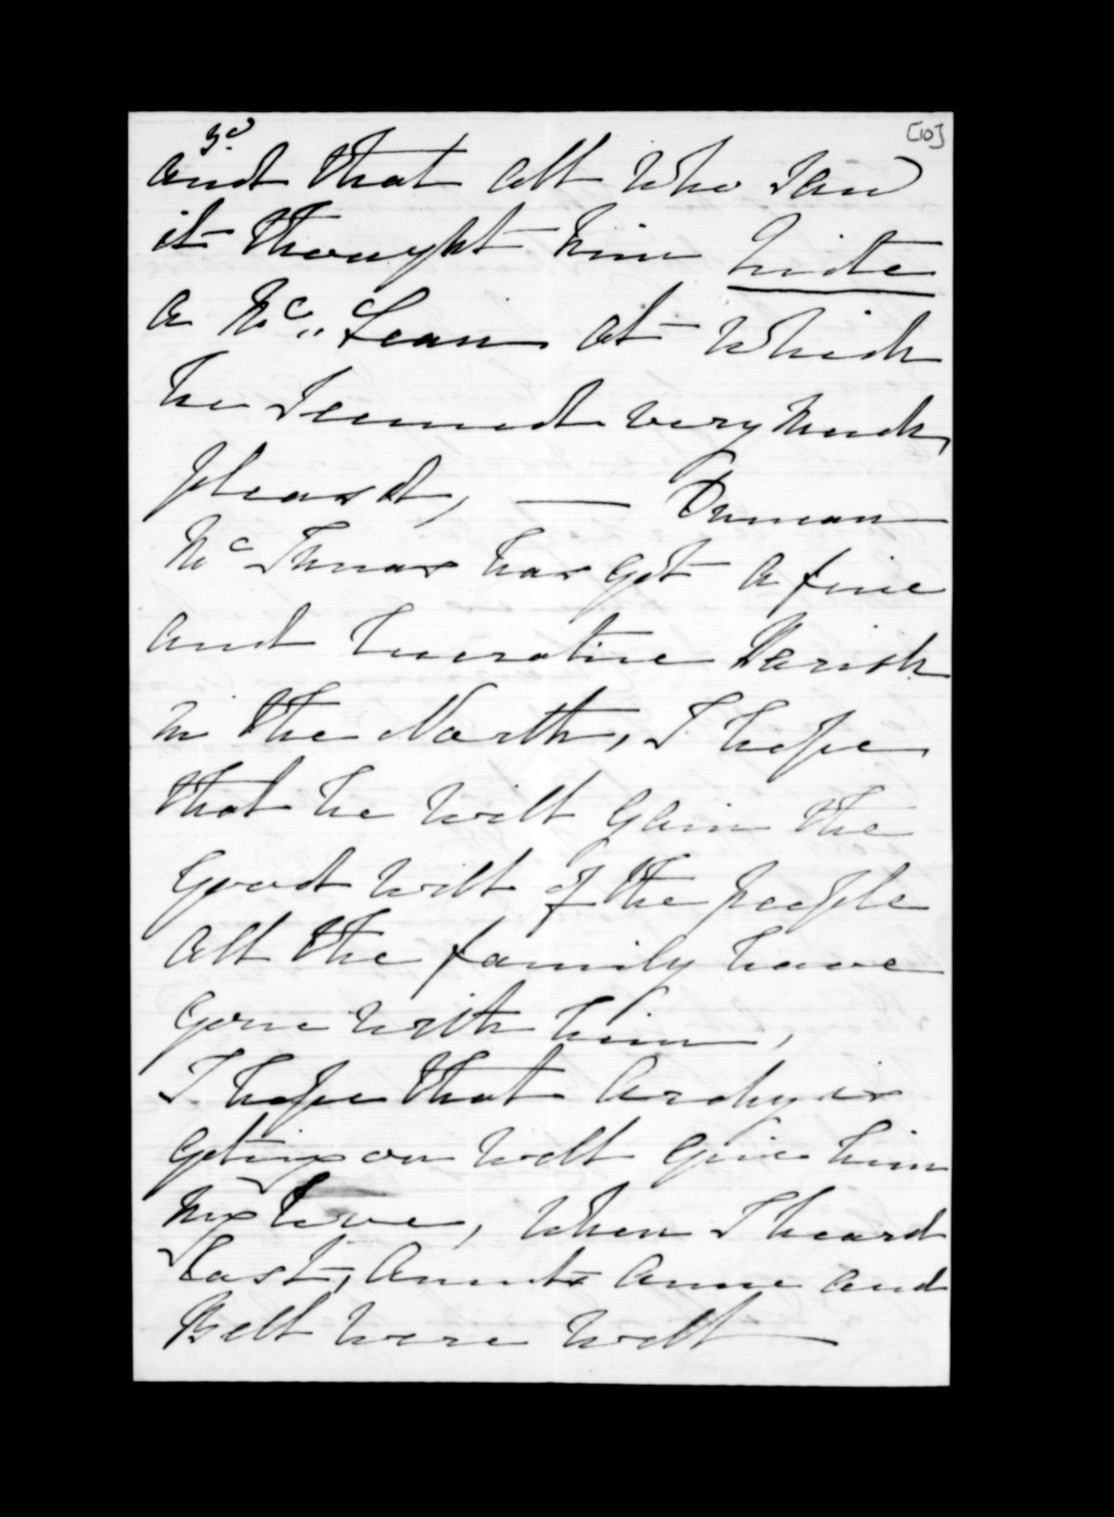 3d [10]
and that all who saw
it thought him quite
a Mc,, Lean at which
he seemed very much
pleasd, — Duncan
Mc Innas has got a fine
and lucrative Parish
in the North, I hope
that he will gain the
good will of the people
all the family have
gone with him,
I hope that Archy is
geting on well give him
my love, when I heard
last, Aunts Anne and
Bell were well —